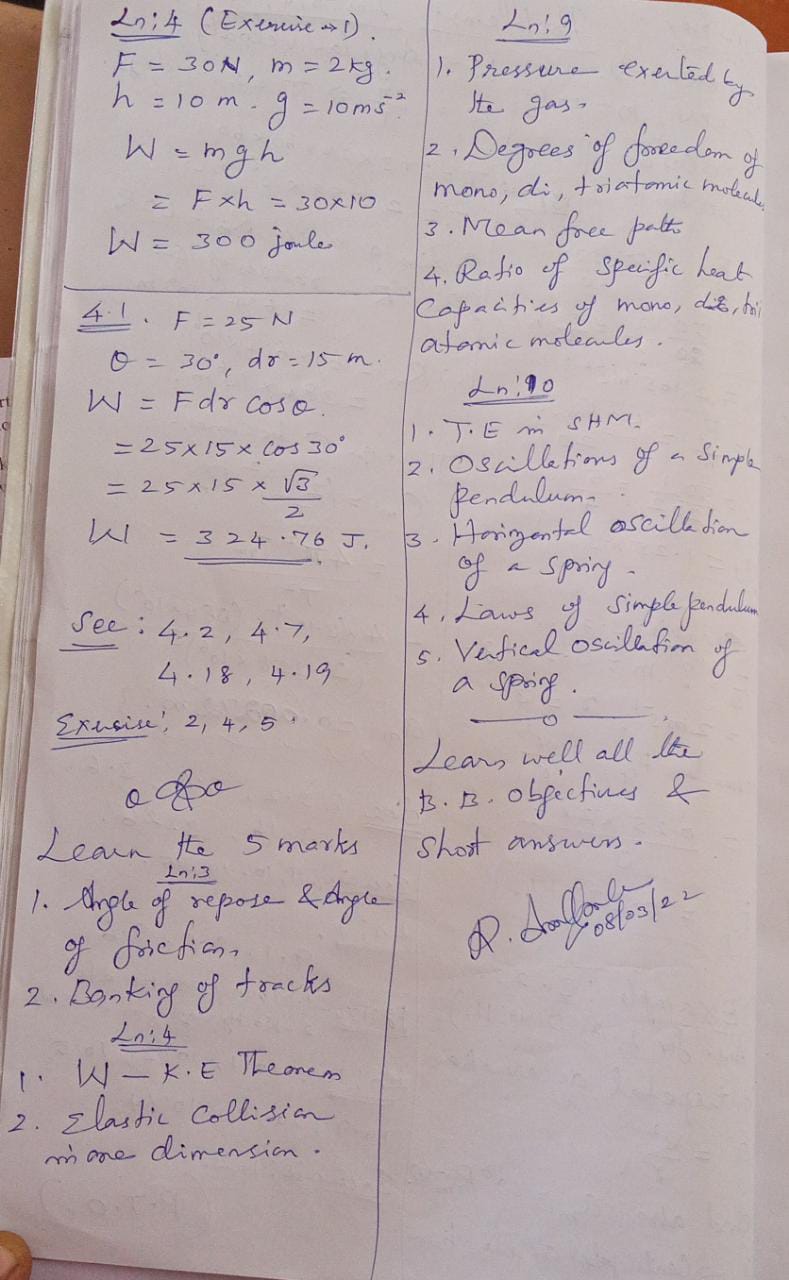 Ln:4 (Exercise → 1).
F = 30N, m = 2kg.
h = 10 m. g = 10ms⁻²
W = mgh
= F×h = 30×10
W = 300 joule
4.1. F = 25 N
θ = 30°, dr = 15 m.
W = Fdr cosθ.
= 25×15× cos 30°
= 25×15× √3/2
W = 324.76 J.
See : 4.2, 4.7,
4.18, 4.19
Exersise: 2, 4, 5.
Learn the 5 marks
Ln:3
1. Angle of repose & Angle
of friction.
2. Banking of tracks
Ln:4
1. W – K.E Theorem
2. Elastic Collision
in one dimension.
Ln:9
1. Pressure exerted by
the gas.
2. Degrees of freedom of
mono, di, triatomic molecule
3. Mean free path
4. Ratio of Specific heat
Capacities of mono, di, tri
atomic molecules.
Ln:10
1. T.E in SHM.
2. Oscillations of a Simple
Pendulum.
3. Horizontal oscillation
of a spring.
4. Laws of Simple pendulum
5. Vertical oscillation of
a spring.
Learn well all the
B.B. objectives &
Short answers.
08/03/22